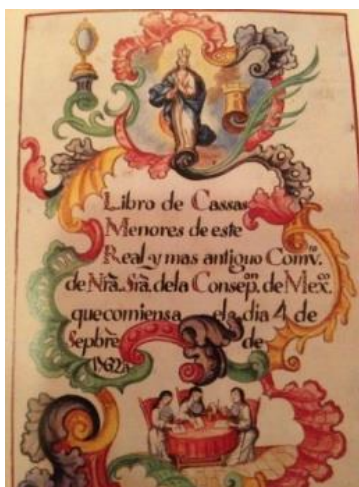 Libro de Cassas
Menores de este
Real y mas antiguo Comv.to
de Ntrã. Srã. de la Consep.on de Mex.co
que comiensa el dia 4 de
Sepbrẽ de